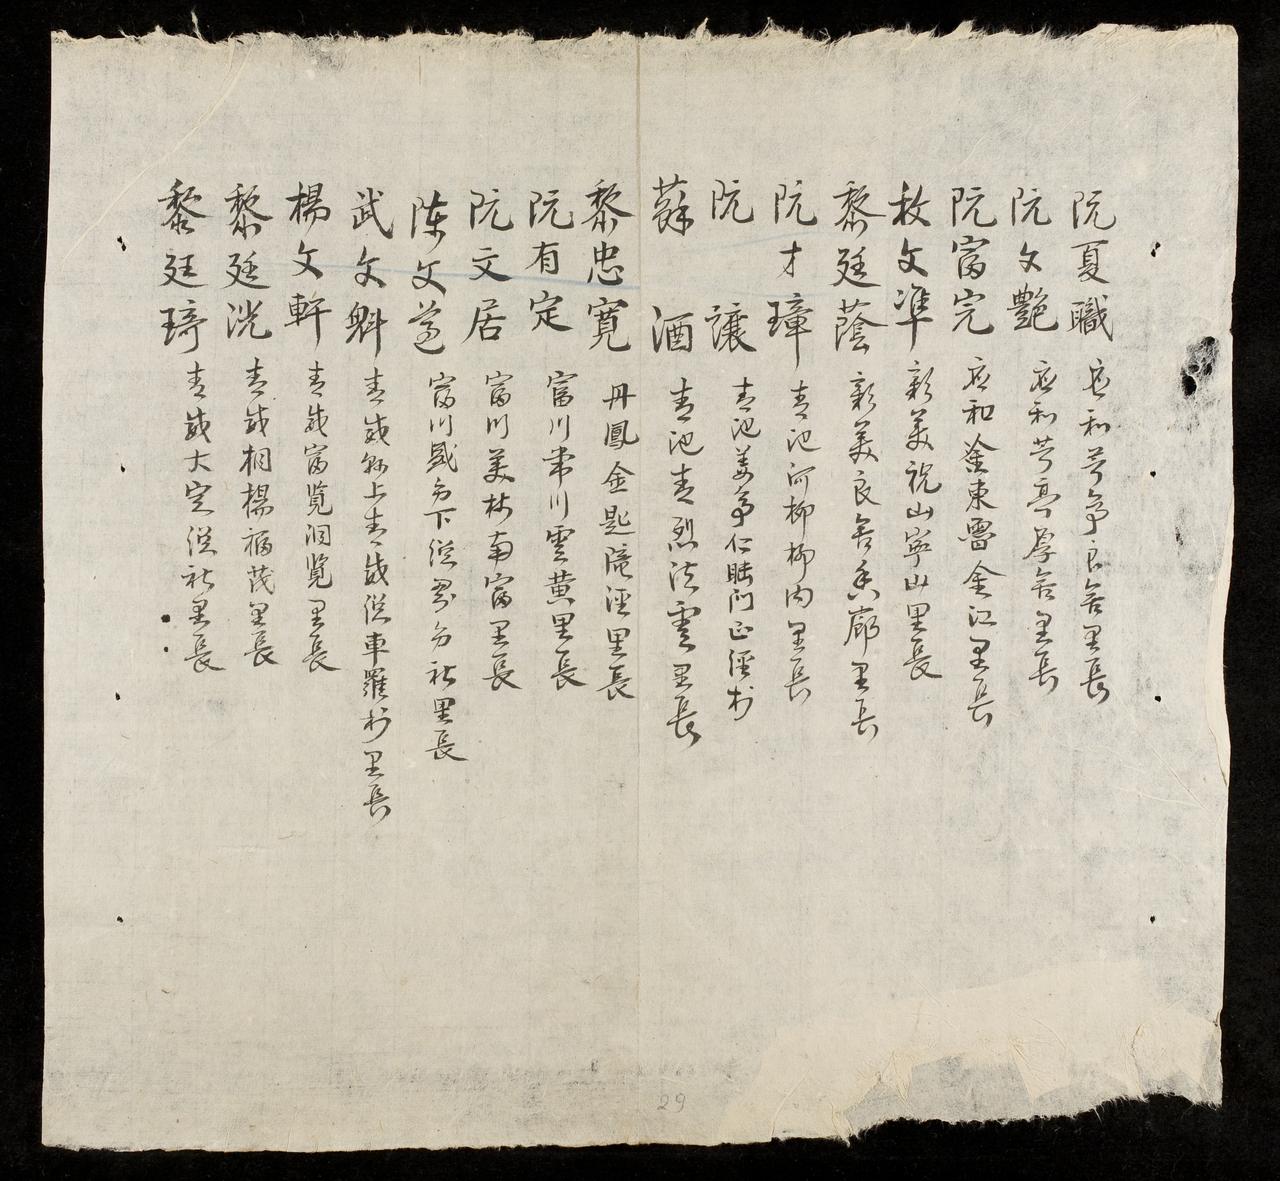 阮夏職 应和芳亭良舍里長
阮文艷 应和芳亭厚舍里長
阮富完 应和釜東魯金江里長
枚文準 彰美祝山寧山里長
黎廷蔭 彰美良舍香廊里長
阮才璋 青池河柳柳内里長
阮讓 青池姜亭仁睦门正徑村
蘇酒 青池青烈法雲里長
黎忠寛 丹鳳金匙陰涇里長
阮有定 富川常川雲黄里長
阮文居 富川美林南富里長
陳文 富川盛為下總為社里長
武文魁 青威縣上青威總車羅村里長
楊文軒 青威富覧洞覧里長
黎廷洸 青威桐楊福茂里長
黎廷琦 青威大定總社里長
29